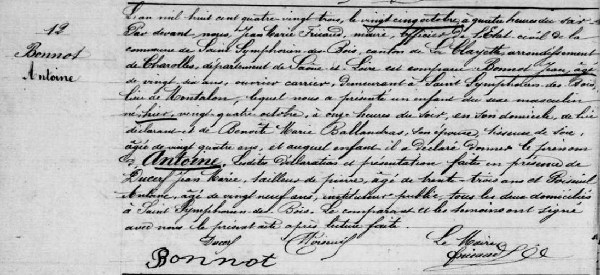 12
Bonnot
Antoine
L'an mil huit cent quatre vingt trois, le vingt cinq octobre, à quatre heures du soir
Par devant nous Jean Marie maire, officier de l'Etat civil de la
commune de Saint Symphorien des Bois, canton de La Clayette, arrondissement
de Charolles, département de Saône et Loire est comparu Bonnot Jean, âgé
de vingt six ans ouvrier carrier, demeurant à Saint Symphorien des Bois,
lieu de Montalon, lequel nous a présenté un enfant du sexe masculin
né hier, vingt quatre octobre, à onze heures du soir, en son domicile, de lui
déclarant et de Benoite Marie Ballandras, son épouse, tisseuse de soie,
âgée de vingt quatre ans, et auquel enfant il a déclaré donner le prénom
d' Antoine, lesdites déclaration et présentation faite en présence de
Ducerf Jean Marie, tailleur de pierre, âgé de trente trois ans et
Antoine, âgé de vingt neuf ans, instituteur public, tous les deux domiciliés
à Saint Symphorien des Bois. Le comparant et les témoins ont signé
avec nous le présent acte après lecture faite.
Ducerf
Le Maire
Bonnot